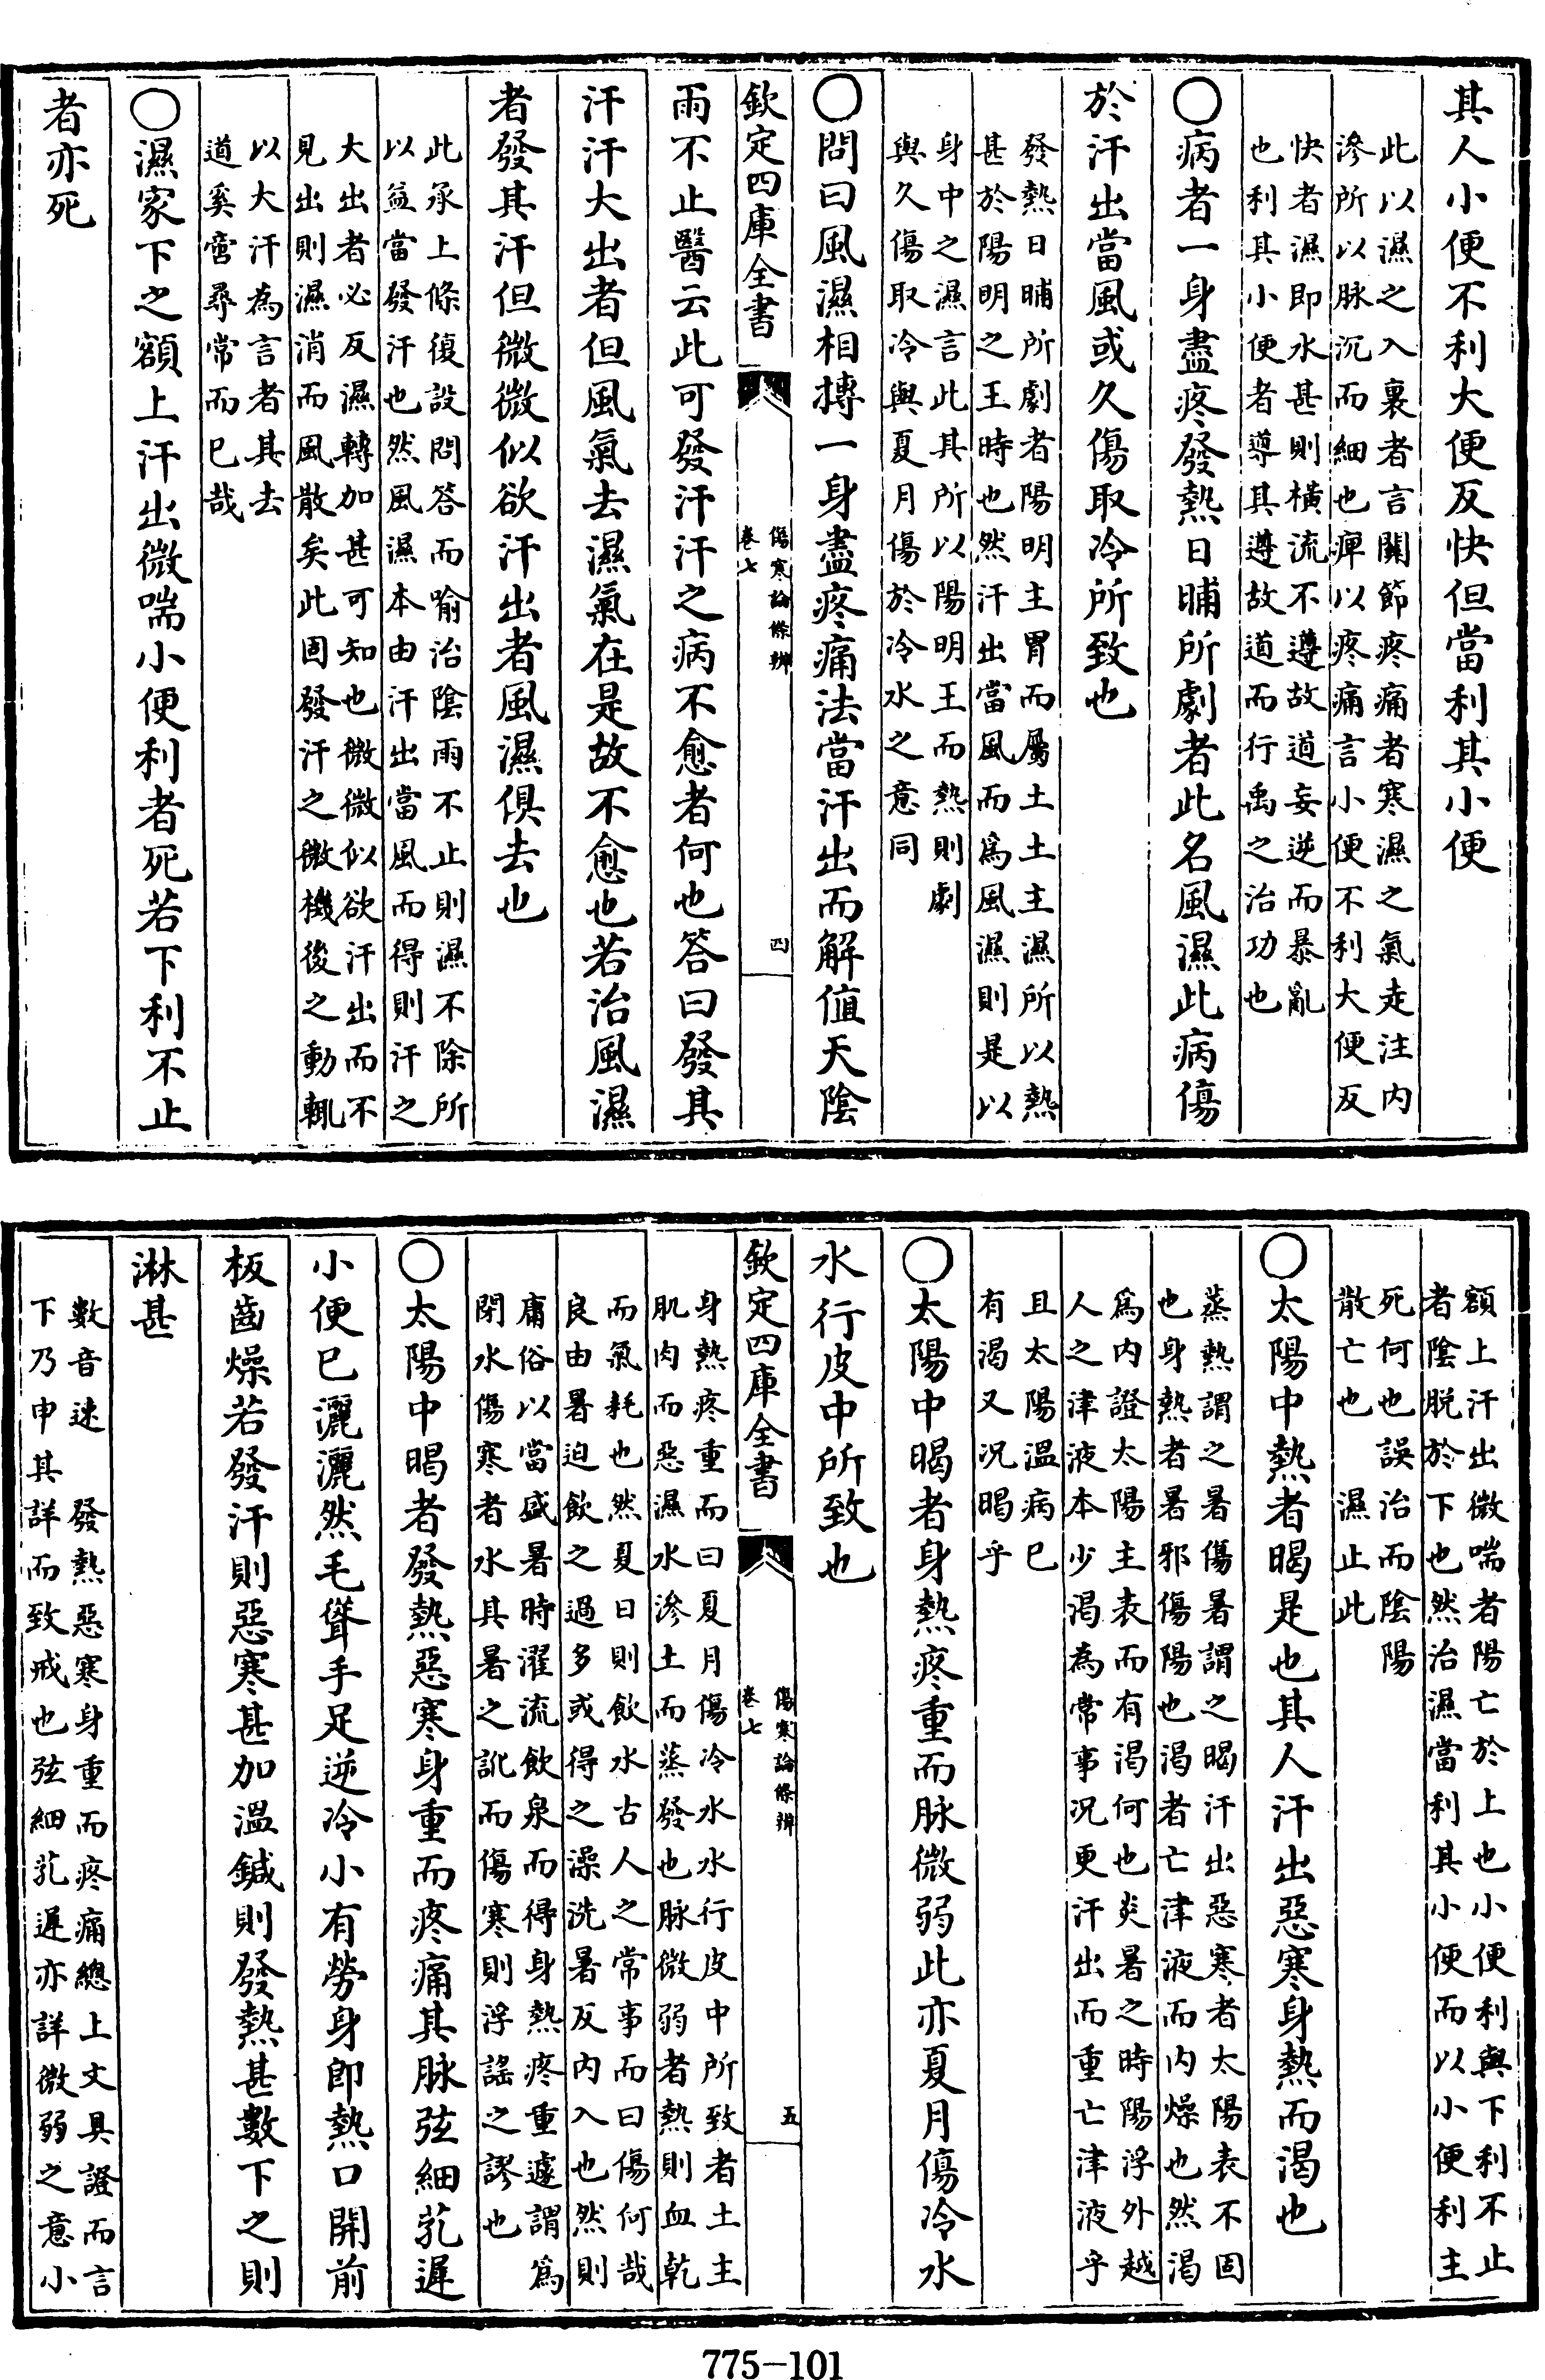 其人小便不利大便反快但當利其小便
此以濕之入裏者言關節疼痛者寒濕之氣走注內
滲所以脉沉而細也痺以疼痛言小便不利大便反
快者濕即水甚則橫流不遵故道妄逆而暴亂
也利其小便者導其遵故道而行禹之治功也
○病者一身盡疼發熱日晡所劇者此名風濕此病傷
於汗出當風或久傷取冷所致也
發熱日晡所劇者陽明主胃而屬土土主濕所以熱
甚於陽明之王時也然汗出當風而爲風濕則是以
身中之濕言此其所以陽明王而熱則劇
與久傷取冷與夏月傷於冷水之意同
○問曰風濕相摶一身盡疼痛法當汗出而解值天陰
欽定四庫全書
傷寒論條辨
卷七
四
雨不止醫云此可發汗汗之病不愈者何也答曰發其
汗汗大出者但風氣去濕氣在是故不愈也若治風濕
者發其汗但微微似欲汗出者風濕俱去也
此承上條復設問答而喻治陰雨不止則濕不除所
以益當發汗也然風濕本由汗出當風而得則汗之
大出者必反濕轉加甚可知也微微似欲汗出而不
見出則濕消而風散矣此固發汗之微機後之動輒
以大汗為言者其去
道奚啻尋常而已哉
○濕家下之額上汗出微喘小便利者死若下利不止
者亦死
額上汗出微喘者陽亡於上也小便利與下利不止
者陰脫於下也然治濕當利其小便而以小便利主
死何也誤治而陰陽
散亡也　濕止此
○太陽中熱者暍是也其人汗出惡寒身熱而渴也
蒸熱謂之暑傷暑謂之暍汗出惡寒者太陽表不固
也身熱者暑邪傷陽也渴者亡津液而內燥也然渴
爲内證太陽主表而有渴何也炎暑之時陽浮外越
人之津液本少渴為常事况更汗出而重亡津液乎
且太陽温病已
有渴又况暍乎
○太陽中暍者身熱疼重而脉微弱此亦夏月傷冷水
水行皮中所致也
欽定四庫全書
傷寒論條辨
卷七
五
身熱疼重而曰夏月傷冷水水行皮中所致者土主
肌肉而惡濕水滲土而蒸發也脉微弱者熱則血乾
而氣耗也然夏日則飲水古人之常事而曰傷何哉
良由暑迫飲之過多或得之澡洗暑反內入也然則
庸俗以當盛暑時濯流飲泉而得身熱疼重遽謂爲
閉水傷寒者水其暑之訛而傷寒則浮謠之謬也
○太陽中暍者發熱惡寒身重而疼痛其脉弦細芤遲
小便已灑灑然毛聳手足逆冷小有勞身即熱口開前
板齒燥若發汗則惡寒甚加溫鍼則發熱甚數下之則
淋甚
數音速　發熱惡寒身重而疼痛總上文具證而言
下乃申其詳而致戒也弦細芤遲亦詳微弱之意小
775-101